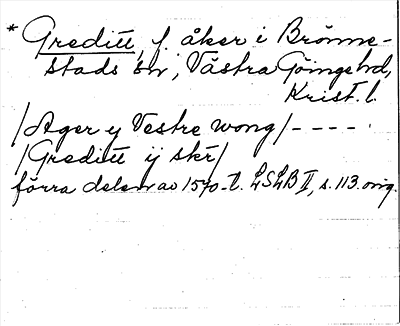 * Greditt, f. åker i Brönne-
stads sn, Västra Göinge hd,
Krist. l.
/Ager y Vestre wong/ - - - - -
/Greditt ij skr/
förra delen av 1570-t. LSLB II, s. 113. orig.